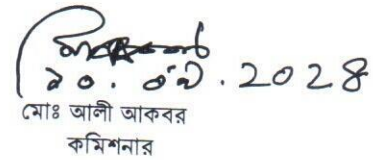 ২০২৪
মোঃ আলী আকবর
কমিশনার